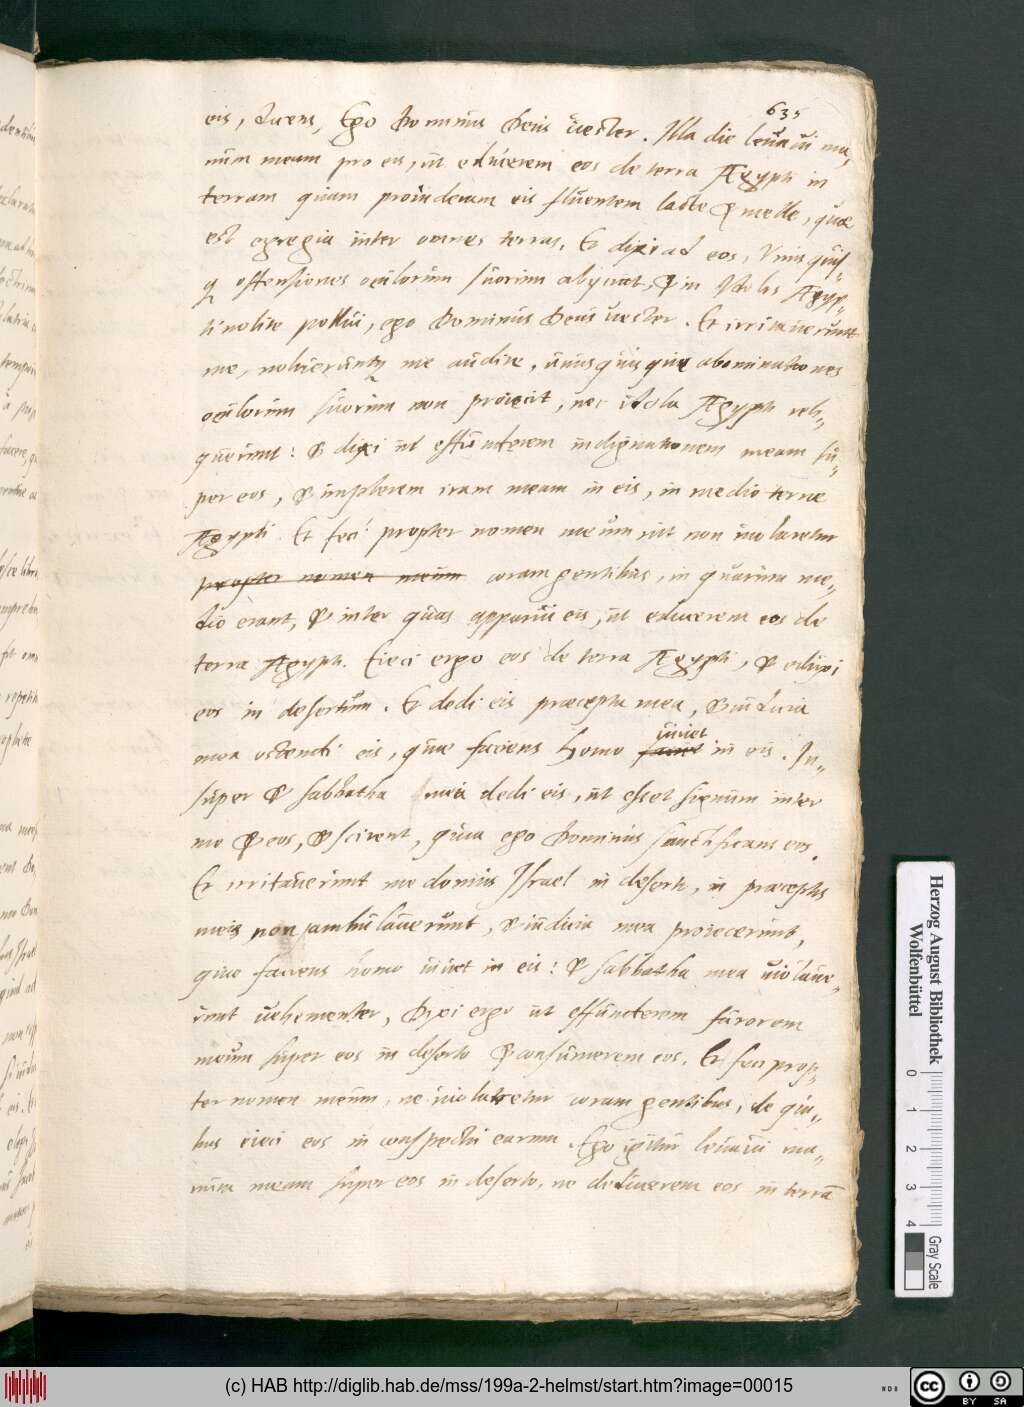 635
eis, dicens, Ego Dominus Deus uester. Illa die leuaui ma,,
num meam pro eis, ut educerem eos de terra Ægypti in
terram quam prouideram eis fluentem lacte & melle, quæ
est egregia inter omnes terras. Et dixi ad eos, Vnusquis,,
q; offensiones oculorum suorum abijciat, & in Idolis Ægyp,,
ti nolite pollui, ego Dominus Deus uester. Et irritauerunt
me, nolueruntq; me audire, unusquisque abominationes
oculorum suorum non proiecit, nec idola Ægypti reli,,
querunt: & dixi ut effunderem indignationem meam su,,
per eos, & implerem iram meam in eis, in medio terræ
Ægypti. Et feci propter nomen meum ut non uiolaretur
propter nomen meum coram gentibus, in quarum me,,
dio erant, & inter quas apparui eis, ut educerem eos de
terra Ægypti. Eieci ergo eos de terra Ægypti, & eduxi
eos in desertum. Et dedi eis præcepta mea, & iudicia
mea ostendi eis, quæ faciens homo uiuet in eis. In,,
super & sabbatha mea dedi eis, ut esset signum inter
me & eos, & scirent, quia ego Dominus sanctificans eos.
Et irritauerunt me domus Israel in deserto, in præceptis
meis non ambulauerunt, & iudicia mea proiecerunt,
quæ faciens homo uiuet in eis: & sabbatha mea uiolaue,,
runt uehementer, Dixi ergo ut effunderem furorem
meum super eos in deserto & consumerem eos. Et feci prop,,
ter nomen meum, ne uiolaretur coram gentibus, de qui,,
bus eieci eos in conspectu earum. Ego igitur leuaui ma,,
num meam super eos in deserto, ne educerem eos in terrã
Herzog August Bibliothek
Wolfenbüttel
0 1 2 3 4
Gray Scale
(c) HAB http://diglib.hab.de/mss/199a-2-helmst/start.htm?image=00015
cc BY SA